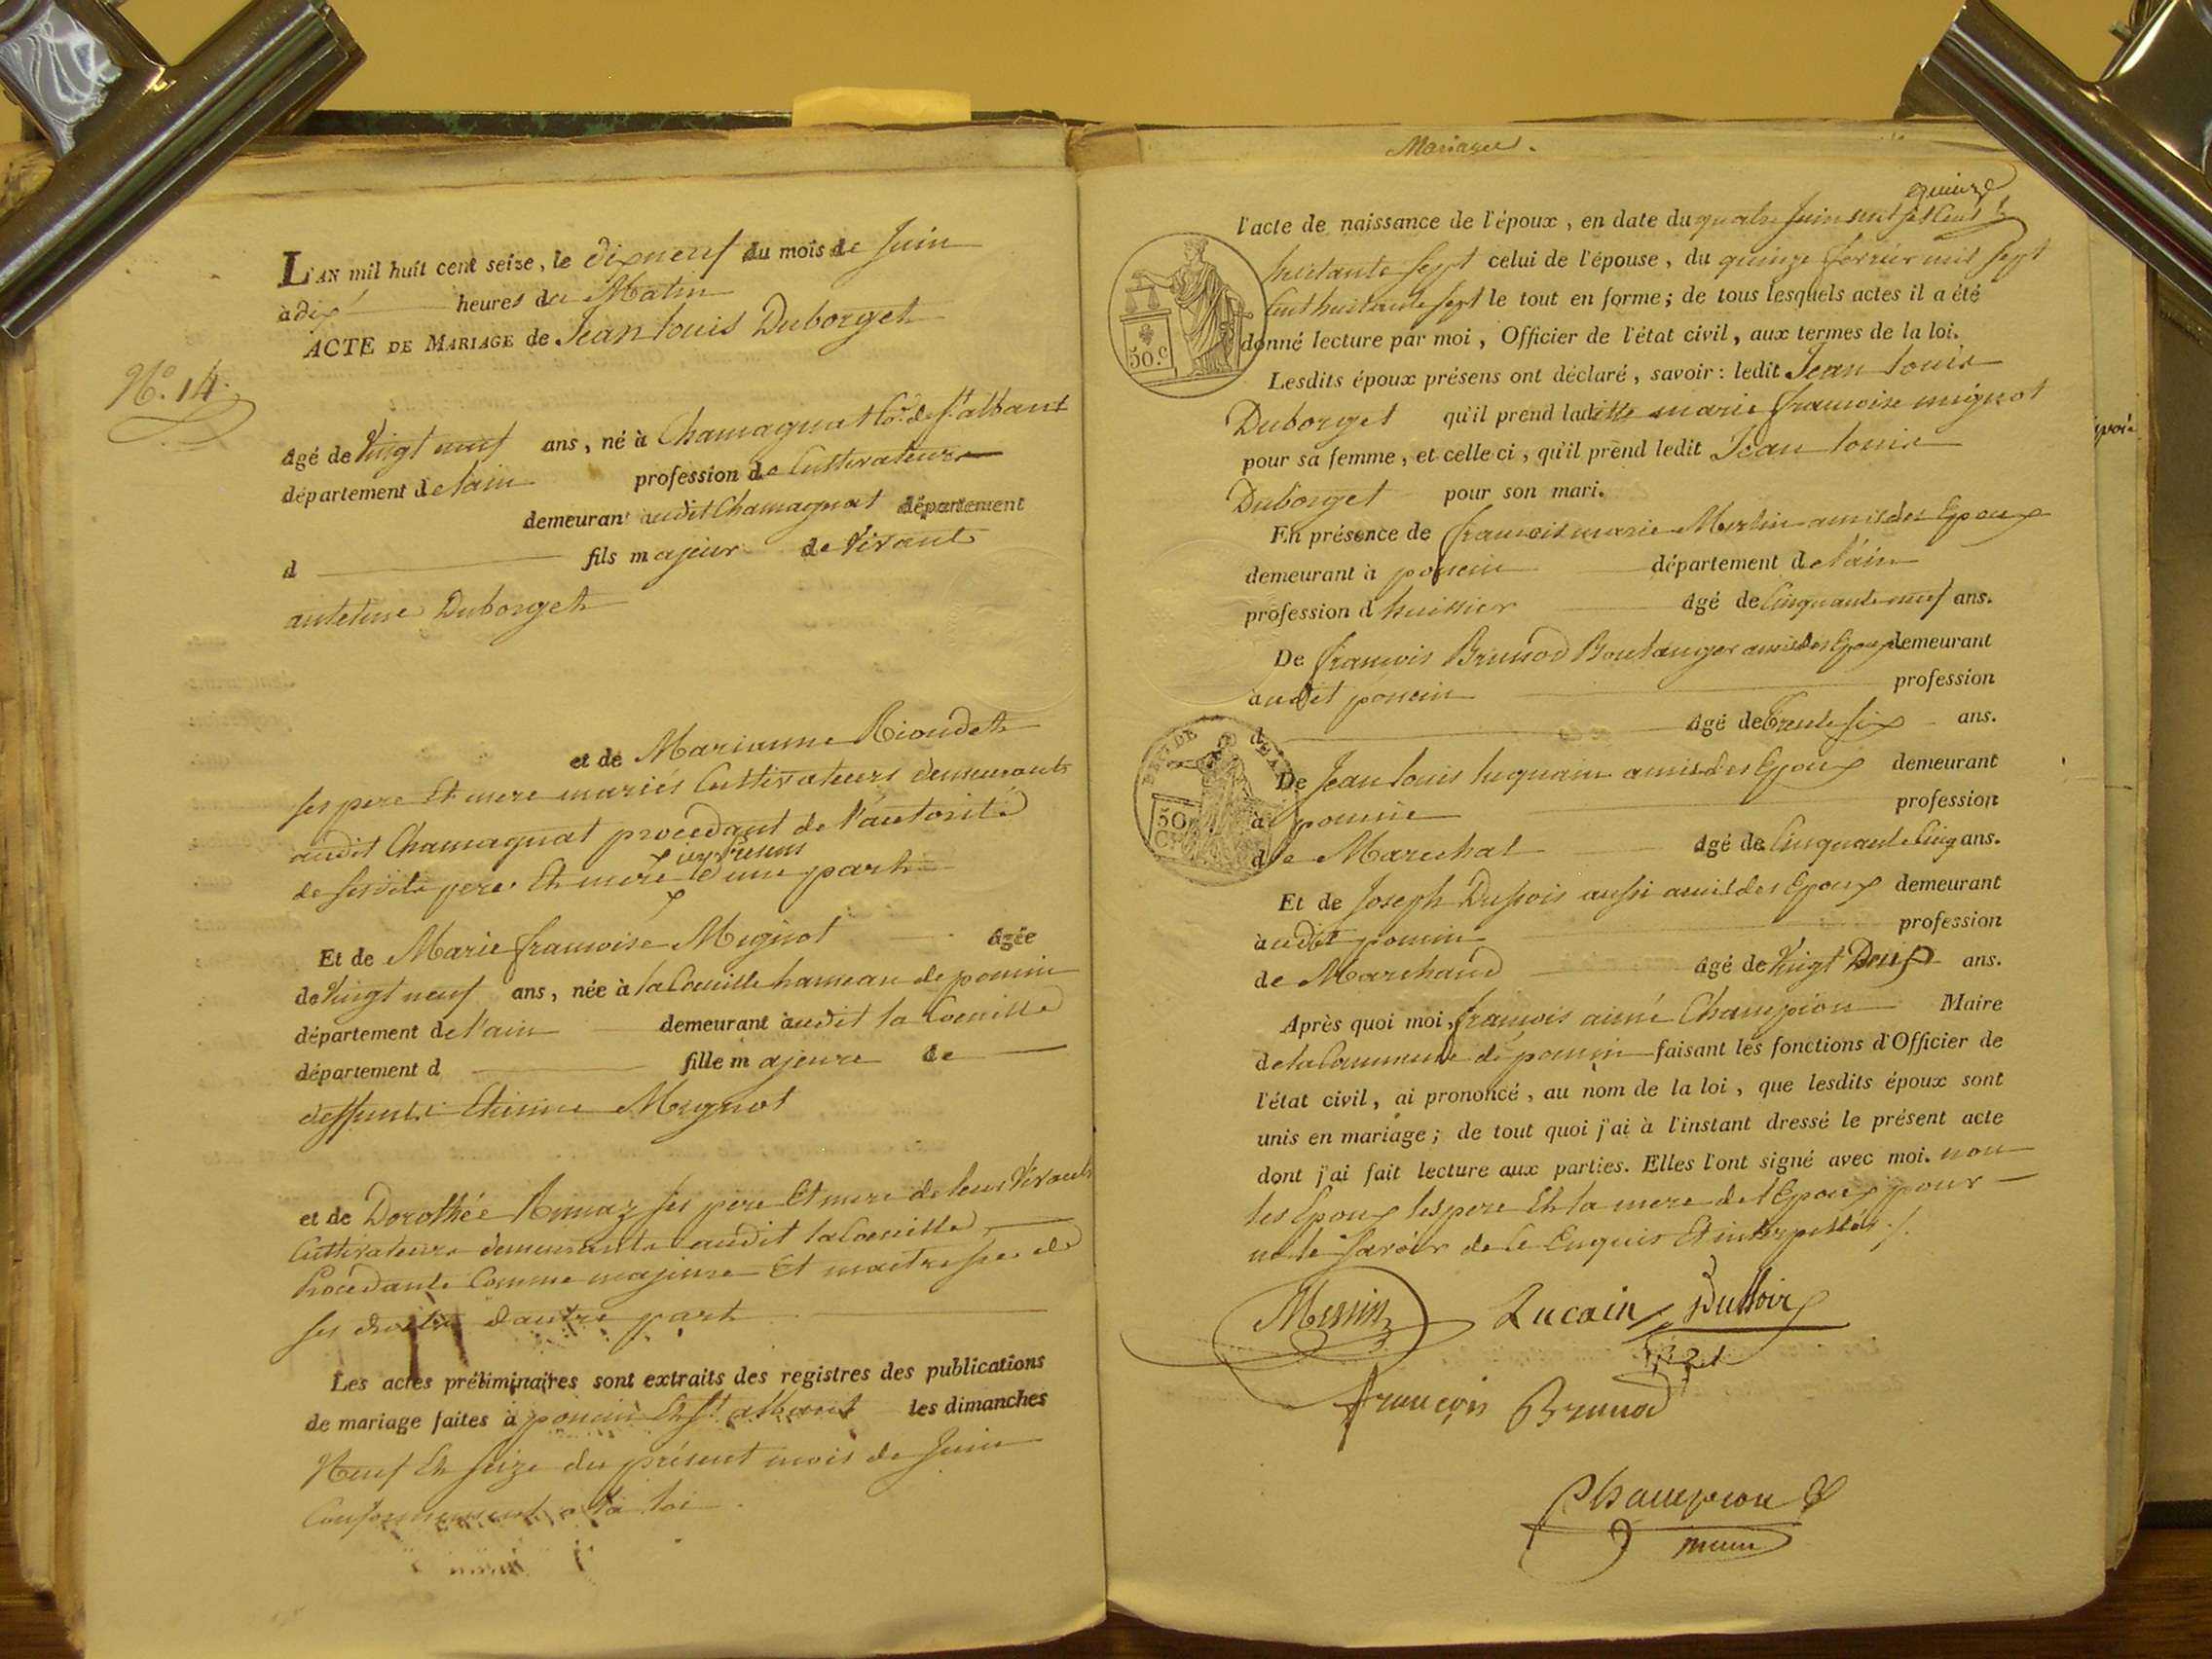 L'AN mil huit cent seize, le dix neuf du mois de Juin
à dix heures du Matin
ACTE DE MARIAGE de Jean Louis Duborget
N.º 14.
âgé de vingt neuf ans, né à Chamagnat Cne de St. alban
département de lain profession de Cultivateur
demeurant audit Chamagnat département
d fils majeur de vivant
antelme Duborget
et de Marianne Rioudet
ses pere Et mere mariés Cultivateurs demeurants
audit Chamagnat procedant de l'autorité
icy presens
de sesdits pere Et mere d'une part
Et de Marie francoise Mignot âgée
de vingt neuf ans, née à la Coeuille hameau de poncin
département de l'ain demeurant audit la Coeuille
département d fille majeure de
deffunt Etienne Mignot
et de Dorothée ses pere Et mere de leur vivants
Cultivateurs demeurants audit la Coeuille
Procedante Comme majeure Et maitresse de
ses droits d'autre part
Les actes préliminaires sont extraits des registres des publications
de mariage faites à poncin Et St. alban les dimanches
Neuf Et seize du présent mois de Juin
Conformement a la loi.
Mariages.
quinze
l'acte de naissance de l'époux, en date du quatre Juin mil sept Cent
huitante sept celui de l'épouse, du quinze fevrier mil sept
Cent huitante sept le tout en forme; de tous lesquels actes il a été
donné lecture par moi, Officier de l'état civil, aux termes de la loi.
50.c
Lesdits époux présens ont déclaré, savoir: ledit Jean Louis
Duborget qu'il prend ladite marie francoise mignot
pour sa femme, et celle ci, qu'il prend ledit Jean Louis
Duborget pour son mari.
En présence de francois marie Mertin amis des Epoux
demeurant à poncin département de l'ain
profession d huissier âgé de Cinquante neuf ans.
De francois Brunod Boulanger amis des Epoux demeurant
audit poncin profession
d âgé de Trente six ans.
De Jean Louis luquain amis des Epoux demeurant
à poncin profession
50
de Marechal âgé de Cinquante Cinq ans.
Et de Joseph Dussoir aussi amis des Epoux demeurant
audit poncin profession
de Marchand âgé de vingt Deux ans.
Après quoi moi, francois aimé Champion Maire
de la Commune de poncin faisant les fonctions d'Officier de
l'état civil, ai prononcé, au nom de la loi, que lesdits époux sont
unis en mariage; de tout quoi j'ai à l'instant dressé le présent acte
dont j'ai fait lecture aux parties. Elles l'ont signé avec moi. non
les Epoux les pere Et la mere de l'Epoux pour
ne le savoir de ce Enquis Et interpellés.
Lucain Dussoir
françois Brunod
Champion
maire